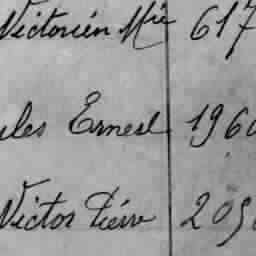 Victorien Mie 617
ules Ernest 196
Victor Pierre 209